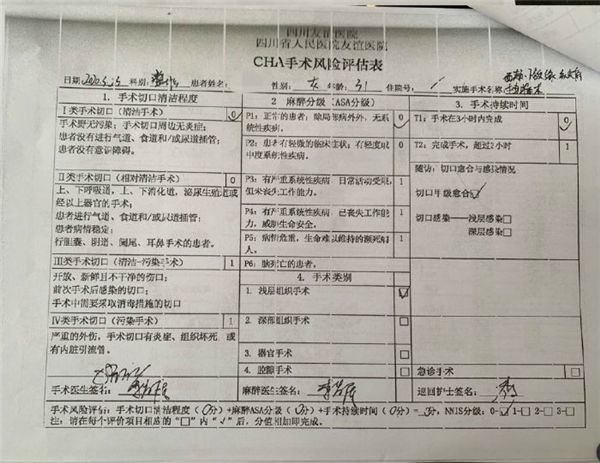 四川友谊医院
四川省人民医院友谊医院
CHA手术风险评估表
日期: 科别: 患者姓名: 性别: 女 年龄: 31 住院号: 实施手术名称:
1. 手术切口清洁程度
I类手术切口(清洁手术) 0
手术野无污染;手术切口周边无炎症;
患者没有进行气道、食道和/或尿道插管;
患者没有意识障碍。
II类手术切口(相对清洁手术) 0
上、下呼吸道,上、下消化道,泌尿生殖道或
经以上器官的手术;
患者进行气道、食道和/或尿道插管;
患者病情稳定;
行胆囊、阴道、阑尾、耳鼻手术的患者。
III类手术切口(清洁-污染手术) 1
开放、新鲜且不干净的伤口;
前次手术后感染的切口;
手术中需要采取消毒措施的切口
IV类手术切口(污染手术) 1
严重的外伤,手术切口有炎症、组织坏死,或
有内脏引流管。
手术医生签名:
2 麻醉分级(ASA分级)
P1:正常的患者;除局部病外外,无系
统性疾病。 0
P2:患者有轻微的临床症状;有轻度或
中度系统性疾病。 0
P3:有严重系统性疾病,日常活动受限,
但未丧失工作能力。 1
P4:有严重系统性疾病,已丧失工作能
力,威胁生命安全。 1
P5:病情危重,生命难以维持的濒死病
人。 1
P6:脑死亡的患者。
4. 手术类别
1. 浅层组织手术 ☑
2. 深部组织手术 □
3. 器官手术 □
4. 腔隙手术 □
麻醉医生签名:
3. 手术持续时间
T1:手术在3小时内完成 0
T2:完成手术,超过3小时 1
随访:切口愈合与感染情况
切口甲级愈合☑
切口感染——浅层感染□
深层感染□
急诊手术 □
巡回护士签名:
手术风险评估:手术切口清洁程度(0分)+麻醉ASA分级(0分)+手术持续时间(0分)= 分,NNIS分级:0-☑1-□2-□3-□
注:请在每个评价项目相应的“□”内“√”后,分值相加即完成。